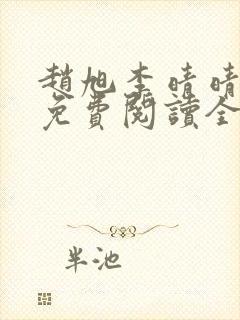 趙旭李晴晴
免費閱讀全
半池